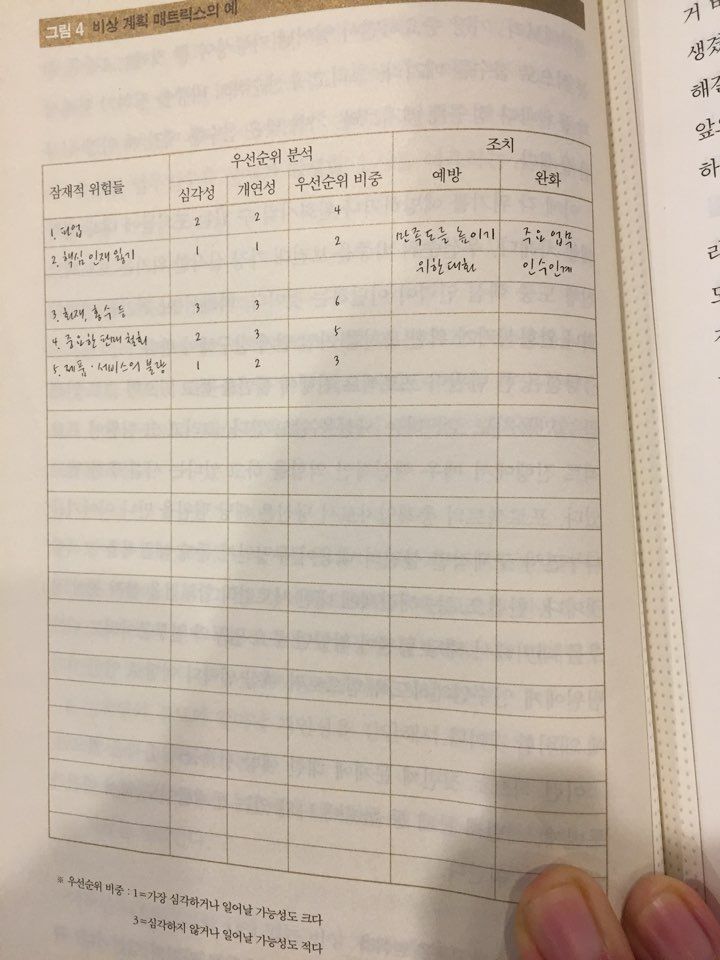 그림 4 비상 계획 매트릭스의 예
우선순위 분석 조치
잠재적 위험들 심각성 개연성 우선순위 비중 예방 완화
1. 파업 2 2 4
2. 핵심 인재 잃기 1 1 2 만족도를 높이기 주요 업무
위한 대화 인수인계
3. 화재, 홍수 등 3 3 6
4. 중요한 판매 철회 2 3 5
5. 제품·서비스의 불량 1 2 3
※ 우선순위 비중 : 1=가장 심각하거나 일어날 가능성도 크다
3=심각하지 않거나 일어날 가능성도 적다
거
생겼
해결
앞으
하